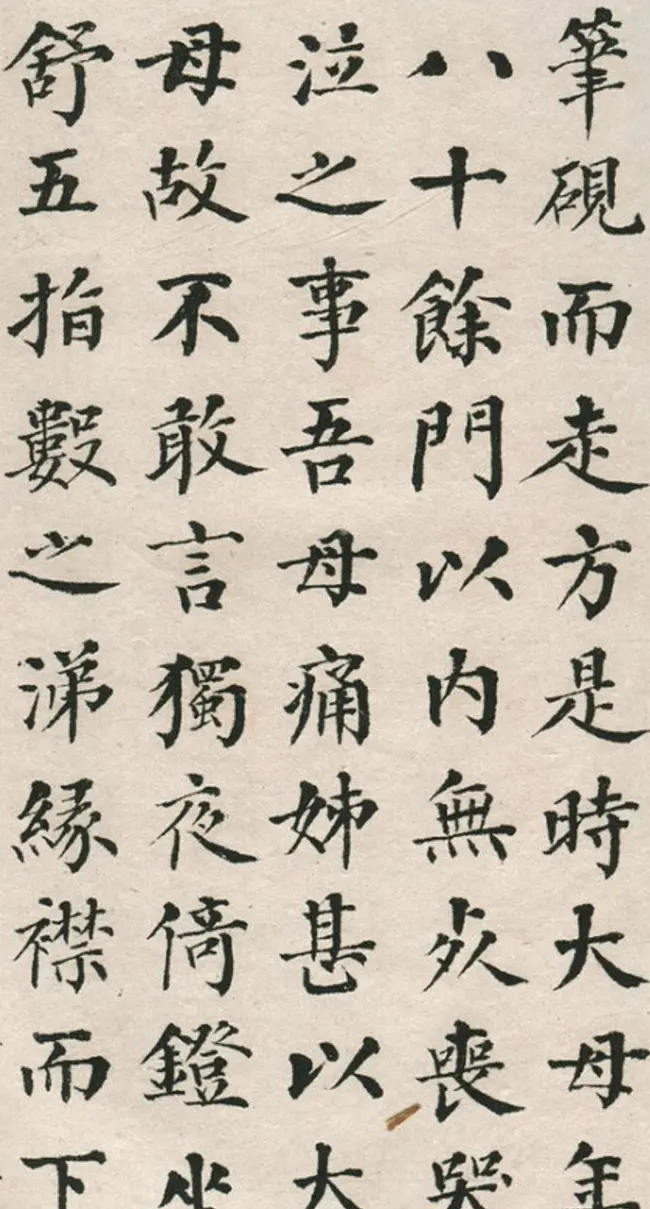 筆硯而走方是時大母年
八十餘門以内無死喪哭
泣之事吾母痛姊甚以大
母故不敢言獨夜倚鐙坐
舒五指數之涕緣襟而下